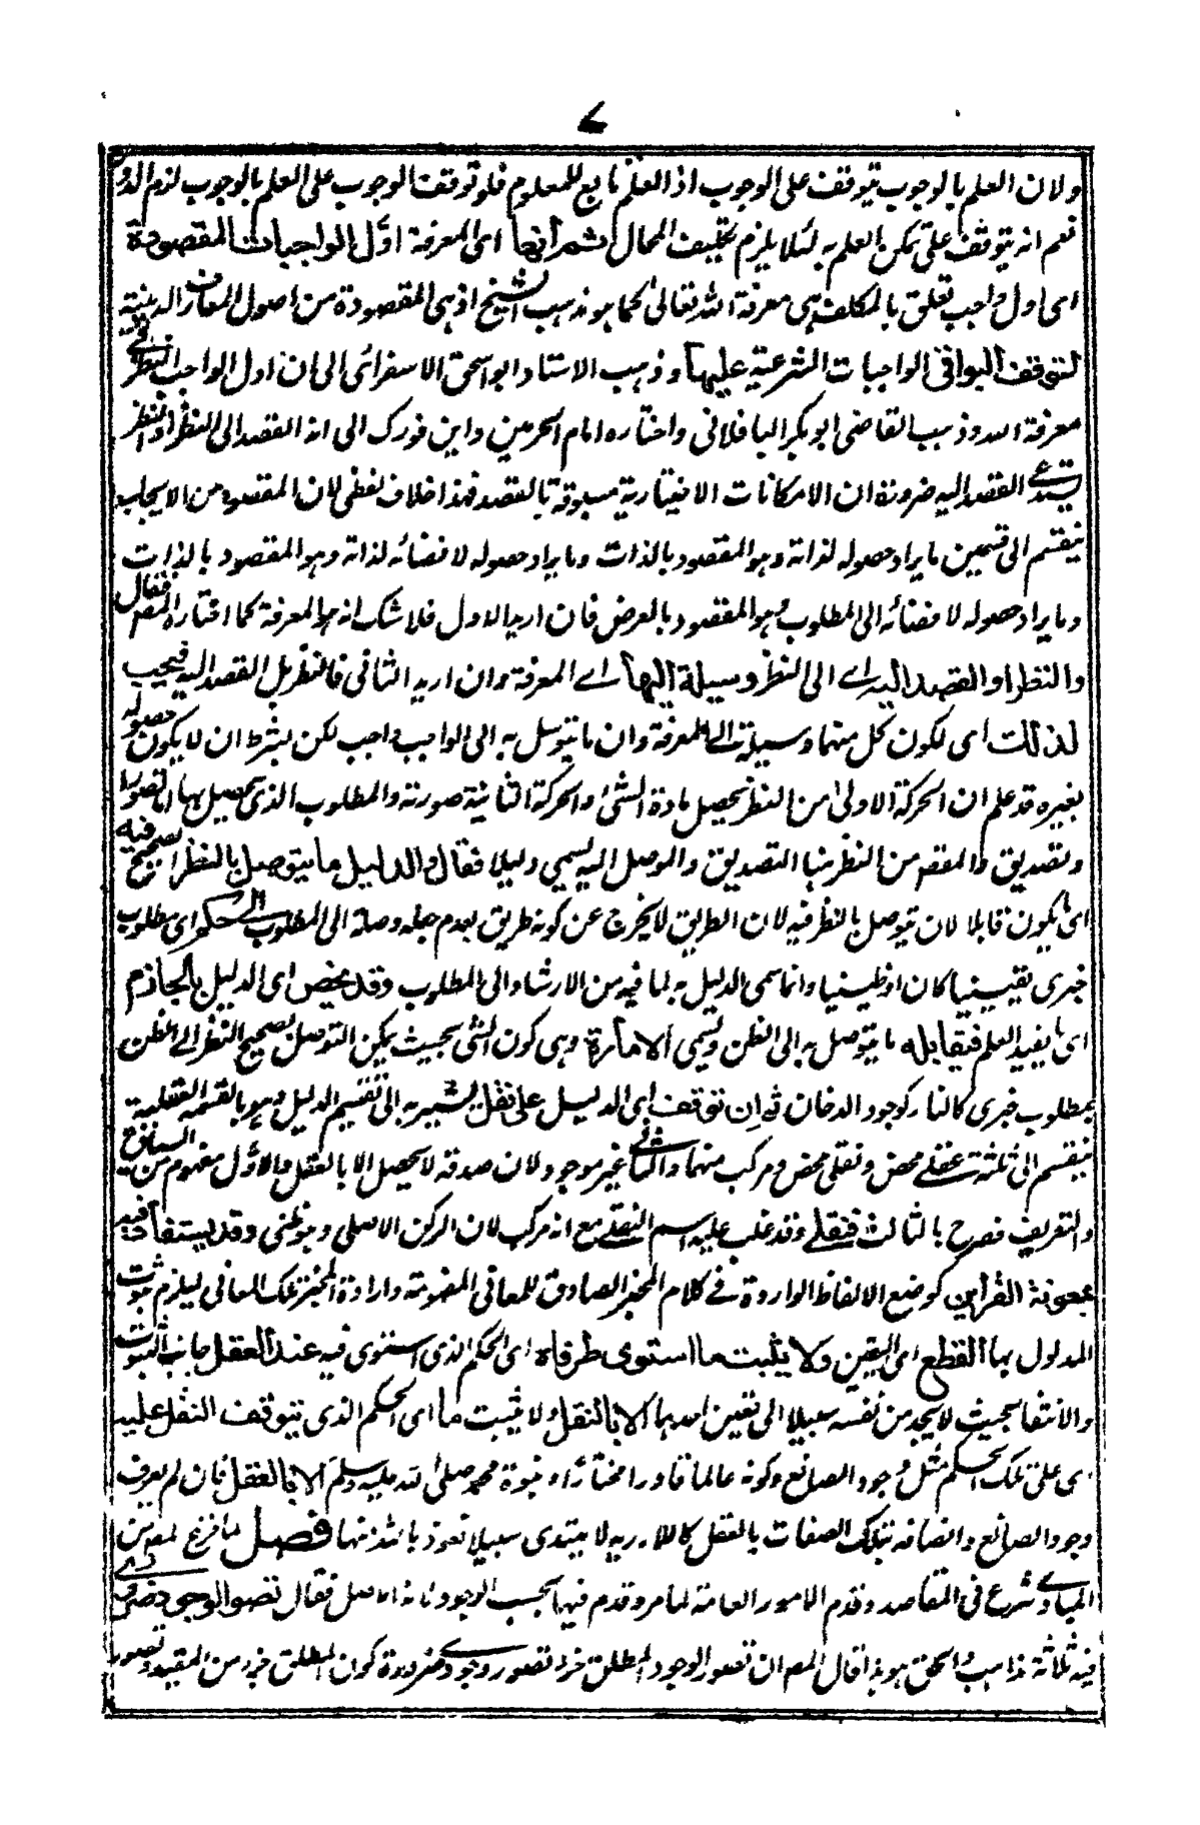 ٧
ولان العلم بالوجوب يتوقف على الوجوب اذ العلم تابع للمعلوم فلو توقف الوجوب على العلم بالوجوب لزم الدور
نعم انه يتوقف على تمكن العلم به لئلا يلزم تكليف المحال ثم انها اى المعرفة اوّل الواجبات المقصودة
اى اول واجب تعلق بالمكلف هى معرفة الله تعالى كما هو مذهب الشيخ اذ هى المقصودة من اصول المعارف الدينية
لتوقف البواقى الواجبات الشرعية عليها وذهب الاستاد ابو اسحق الاسفرائى الى ان اول الواجب النظر فى
معرفة الله وذهب القاضى ابو بكر الباقلانى واختاره امام الحرمين وابن فورك الى انه القصد الى النظر اذ النظر
يستدعى القصد اليه ضرورة ان الامكانات الاختيارية مسبوقة بالقصد فهذا خلاف لفظى لان المقصود من الايجاب
ينقسم الى قسمين ما يراد حصوله لذاته وهو المقصود بالذات وما يراد حصوله لافضائه لذاته وهو المقصود بالذات
وما يراد حصوله لافضائه الى المطلوب وهو المقصود بالعرض فان اريد الاول فلا شك انه هو المعرفة كما اختاره المصر فقال
والنظر او القصد اليه اے الى النظر وسيلة اليها اے المعرفة وان اريد الثانى فالنظر بل القصد اليه فيجب
لذلك اى لكون كل منهما وسيلة الى المعرفة وان ما يتوسل به الى الواجب واجب لكن بشرط ان لا يكون حصوله
بغيره قد علم ان الحركة الاولى من النظر يحصل مادة الشئ والحركة الثانية صورته والمطلوب الذى يحصل بها اما تصور او
وتصديق والمقصد من النظر هنا التصديق والموصل اليه يسمى دليلا فقال والدليل ما يتوصل بالنظر الصحيح فيه
اى يكون قابلا لان يتوصل بالنظر فيه لان الطريق لا يخرج عن كونه طريق بعدم جعله وصلة الى المطلوب الى حكم اى مطلوب
خبرى يقينيا كان او ظنيا وانما سمى الدليل به لما فيه من الارشاد الى المطلوب وقد يخص اى الدليل بالجازم
اى ما يفيد العلم فيقابله ما يتوصل به الى الظن ويسمى الامارة وهى كون الشئ بحيث يمكن التوصل بصحيح النظر الى الظن
بمطلوب خبرى كالنار كوجود الدخان ثم ان توقف اى الدليل على نقل يشير به الى تقسيم الدليل وهو بالقسمة العقلية
ينقسم الى ثلثة عقلے محض ونقلى محض ومركب منهما والثانى غير موجود لان صدقه لا يحصل الا بالعقل والاوّل مفهوم من السابق
والتعريف فصرح بالثالث فنقلے وقد غلب عليه اسم النقلے مع انه مركب لان الركن الاصلى وهو ظنى وقد يستفاد فيه
بمعونة القراين كوضع الالفاظ الواردة فى كلام المخبر الصادق للمعانى المفهومة وارادة المخبر تلك المعانى ليلزم ثبوت
المدلول بها القطع اى اليقين ولا يثبت ما استوى طرفاه اى الحكم الذى استوى فيه عند العقل جانب الثبوت
والانتفا بحيث لا يجد من نفسه سبيلا الى تعين احدهما الا بالنقل ولا يثبت ما اى الحكم الذى يتوقف النقل عليه
اى على تلك الحكم مثل وجود الصانع وكونه عالما قادرا مختارا ونبوة محمد صلى الله عليه وسلم الا بالعقل فان لم يعرف
وجود الصانع واتصافه بتلك الصفات بالعقل لا يهتدى سبيلا نعوذ بالله منها فصل لما فرغ المصر من
المبادى شرع فى المقاصد وقدم الامور العامة لما مر وقدم فيها بحسب الوجود لانه الاصل فقال تصور الوجود ضرورى
فيه ثلاثة مذاهب الحق هو هذا قال المصر ان تصور الوجود المطلق جزء تصور وجودے ضرورة كون المطلق جزء من المقيد وتصور